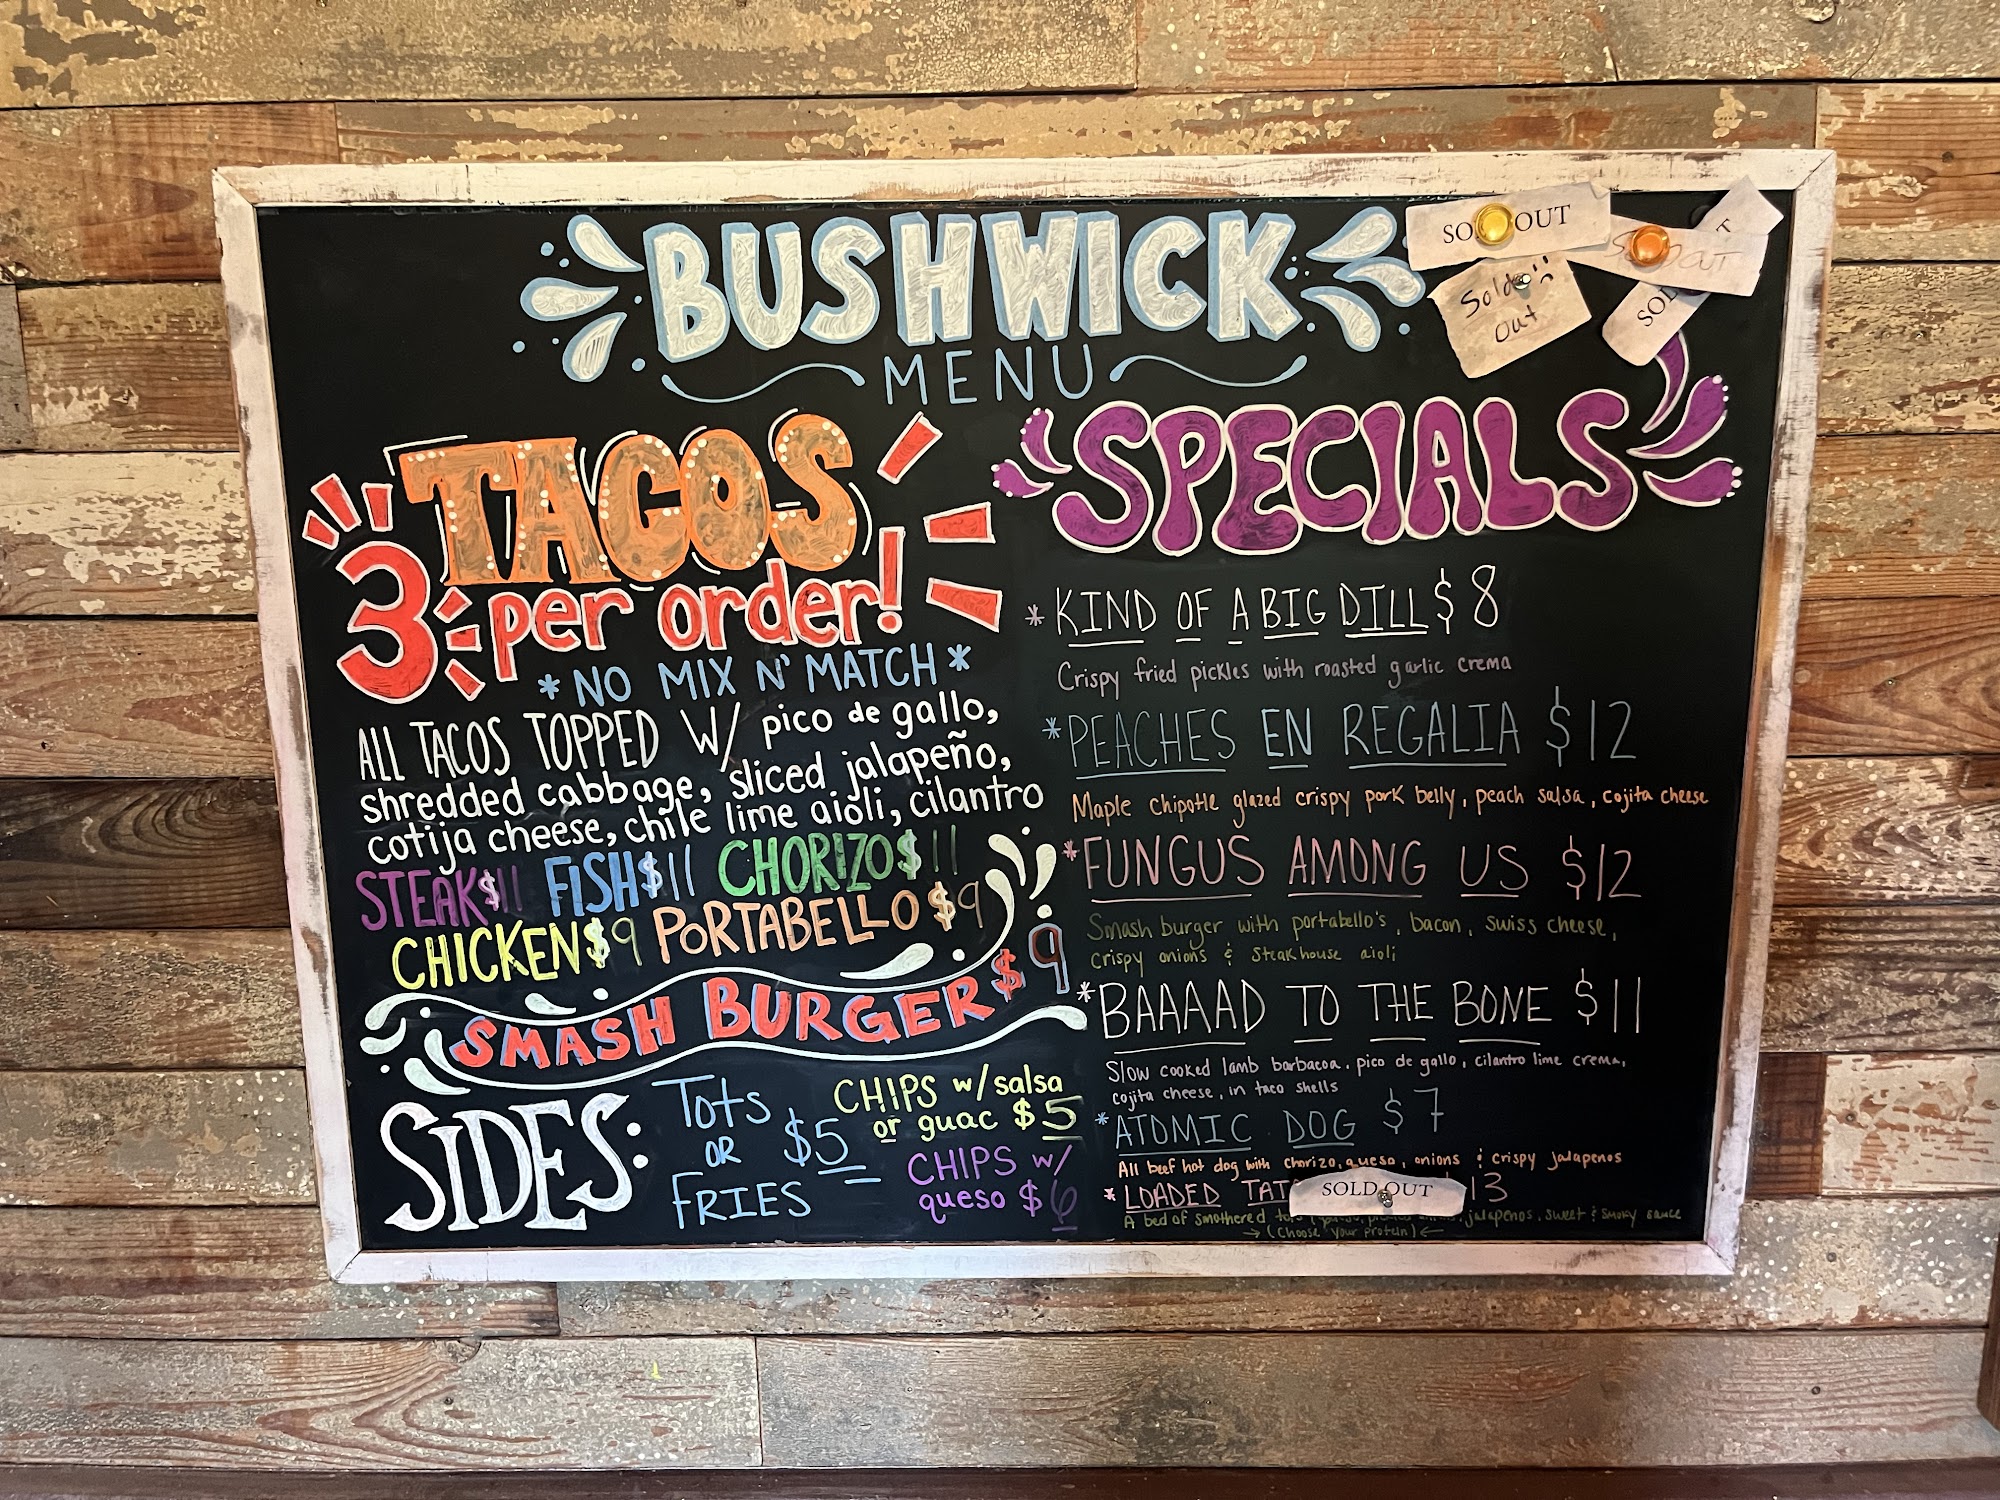 BUSHWICK
MENU
SOLD OUT
SOLD OUT
Sold out
SOL T
TACOS
3 per order!
*NO MIX N' MATCH*
ALL TACOS TOPPED W/ pico de gallo,
shredded cabbage, sliced jalapeño,
cotija cheese, chile lime aioli, cilantro
STEAK $11 FISH $11 CHORIZO $11
CHICKEN $9 PORTABELLO $9
SMASH BURGER $9
SIDES:
Tots
OR
FRIES
$5
CHIPS w/salsa
or guac $5
CHIPS w/
queso $6
SPECIALS
*KIND OF A BIG DILL $8
Crispy fried pickles with roasted garlic crema
*PEACHES EN REGALIA $12
Maple chipotle glazed crispy pork belly, peach salsa, cojita cheese
*FUNGUS AMONG US $12
Smash burger with portabello's, bacon, swiss cheese,
crispy onions & steakhouse aioli
*BAAAAD TO THE BONE $11
Slow cooked lamb barbacoa, pico de gallo, cilantro lime crema,
cojita cheese, in taco shells
*ATOMIC DOG $7
All beef hot dog with chorizo, queso, onions & crispy jalapenos
*LOADED TAT 13
SOLD OUT
A bed of smothered tots jalapenos, sweet & smoky sauce
→ (Choose your protein) ←